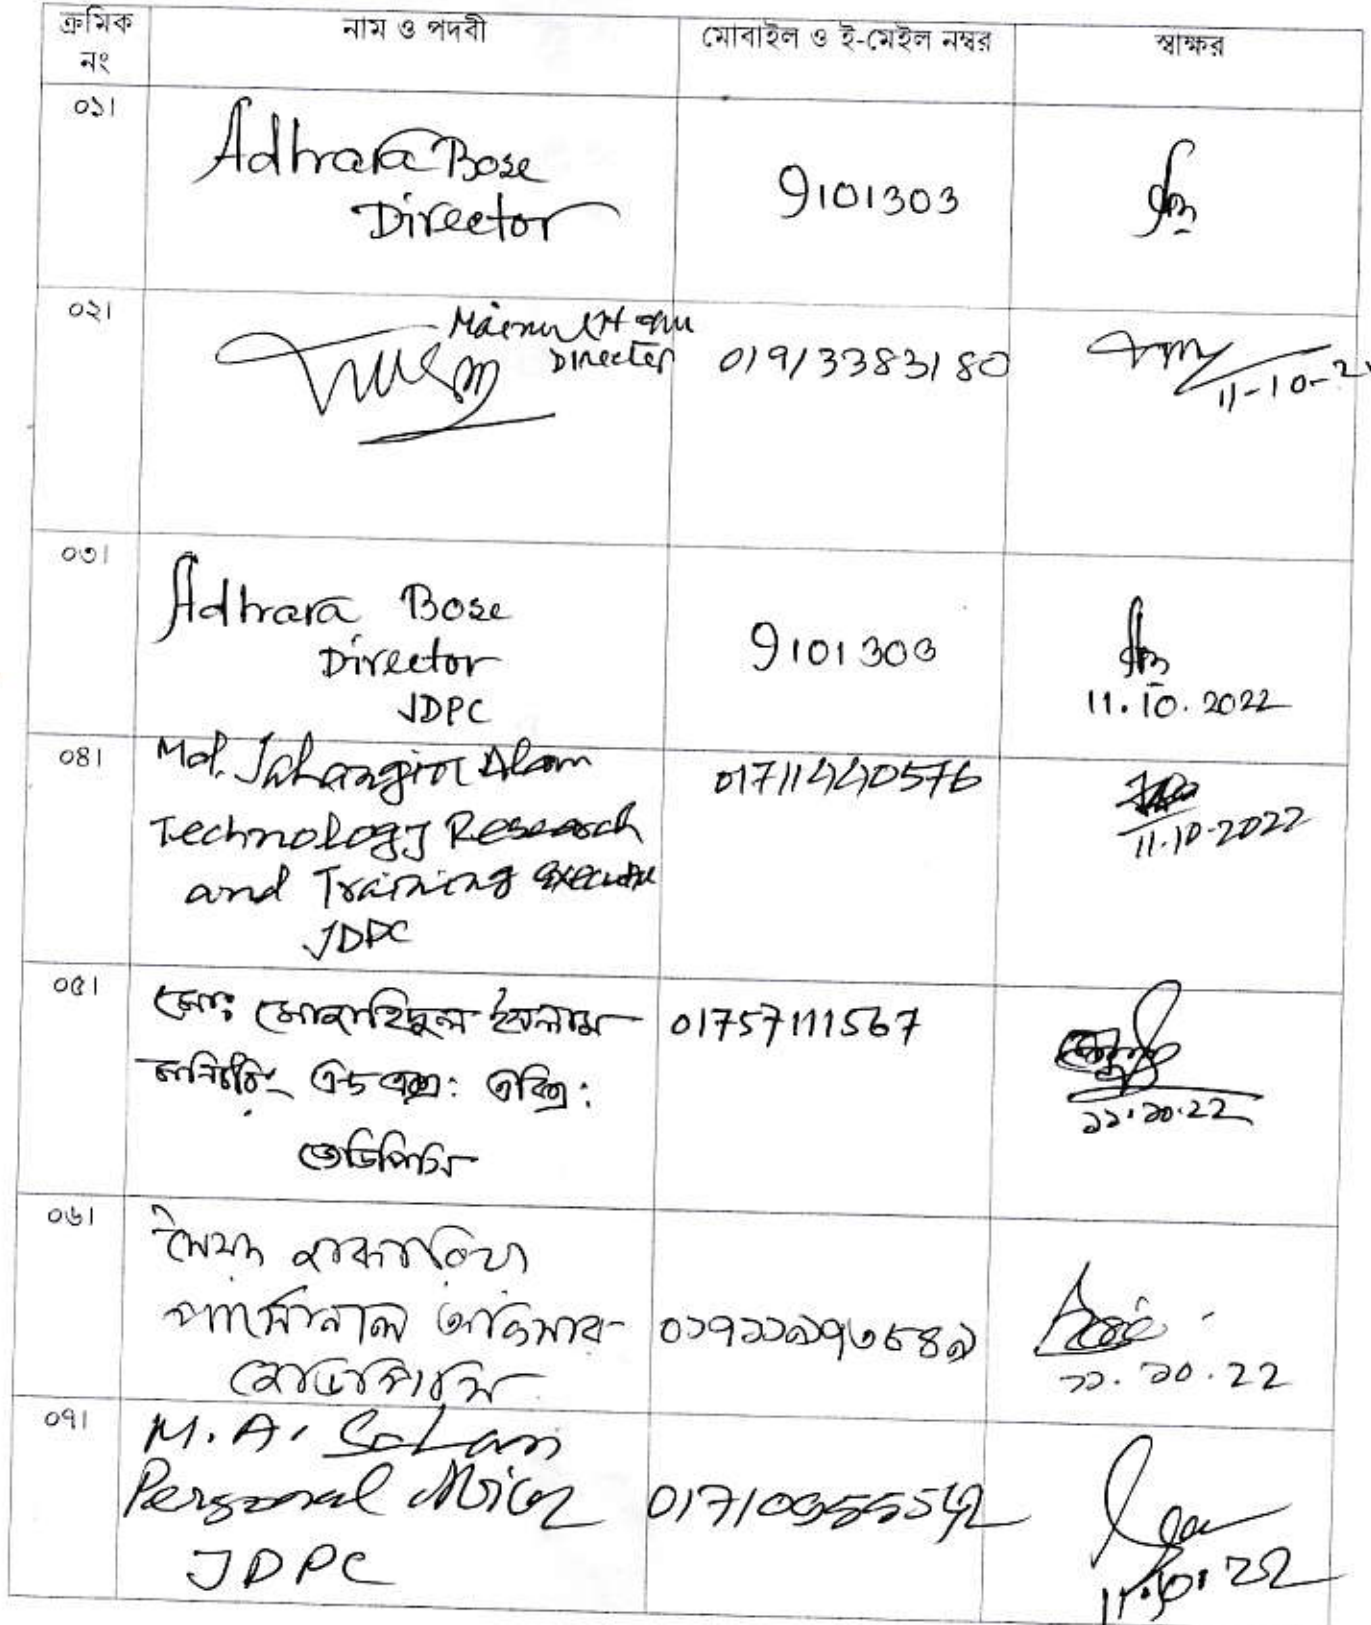 ক্রমিক নং নাম ও পদবী মোবাইল ও ই-মেইল নম্বর স্বাক্ষর
০১।
Adhara Bose
Director
9101303
০২।
Director
01913383180
11-10-2
০৩।
Adhara Bose
Director
JDPC
9101303
11.10.2022
০৪।
Md. Jahangir Alam
Technology Research
and Training Executive
JDPC
01711440576
11.10.2022
০৫।
মোঃ মোজাহিদুল ইসলাম
জেডিপিসি
01757111567
১১.১০.22
০৬।
সৈয়দ জাকারিয়া
পার্সোনাল অফিসার
জেডিপিসি
১১.১০.22
০৭।
M. A. Salam
Personal Officer
JDPC
11.10.22